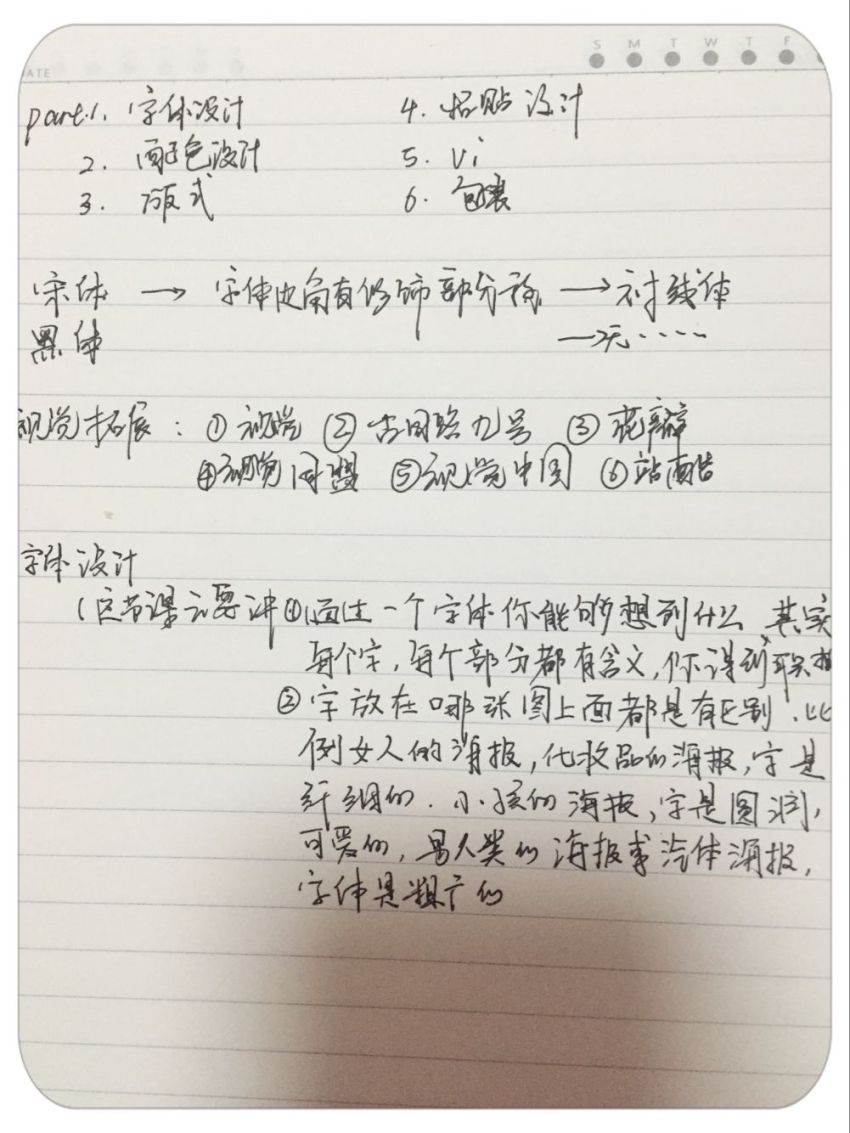 ATE
S M T W T F
part.1. 字体设计 4. 粘贴设计
2. 配色设计 5. Vi
3. 版式 6. 包装
宋体 → 字体边角有修饰部分称 → 衬线体
黑体 → 无····
视觉拓展：① 视觉 ② 古田路九号 ③ 花瓣
④视觉同盟 ⑤视觉中国 ⑥站酷
字体设计
(这节课主要讲①通过一个字体你能够想到什么,其实
每个字,每个部分都有含义,你得到联想
②字放在哪张图上面都是有区别.比
例女人的海报,化妆品的海报,字是
纤细的.小孩的海报,字是圆润,
可爱的,男人类的海报或汽体海报,
字体是粗广的